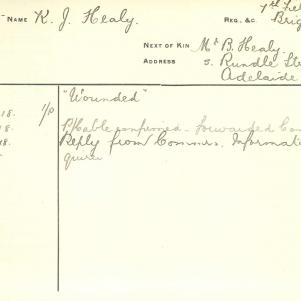 NAME K. J. Healy.
7th Fiel
REG. &C. Brig
NEXT OF KIN Mr B. Healy.
ADDRESS 5. Rundle Stre
Adelaide
"Wounded"
18. 1/P B/Cable confirmed - forwarded Com
18.
18. Reply from Commrs. Informati